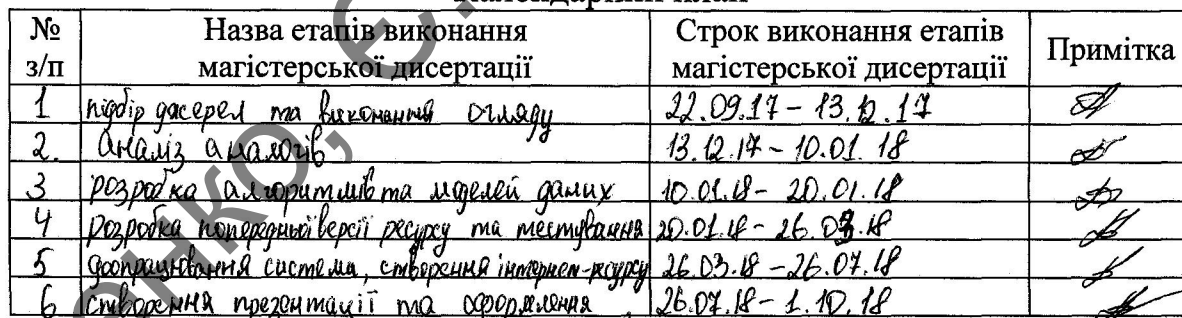 Календарний план
№ Назва етапів виконання Строк виконання етапів Примітка
з/п магістерської дисертації магістерської дисертації
1 підбір джерел та виконання огляду 22.09.17 – 13.12.17
2. Аналіз аналогів 13.12.17 – 10.01.18
3 розробка алгоритмів та моделей даних 10.01.18 – 20.01.18
4 розробка попередньої версії ресурсу та тестування 20.01.18 – 26.03.18
5 доопрацювання система, створення інтернет-ресурсу 26.03.18 – 26.07.18
6 створення презентації та оформлення 26.07.18 – 1.10.18